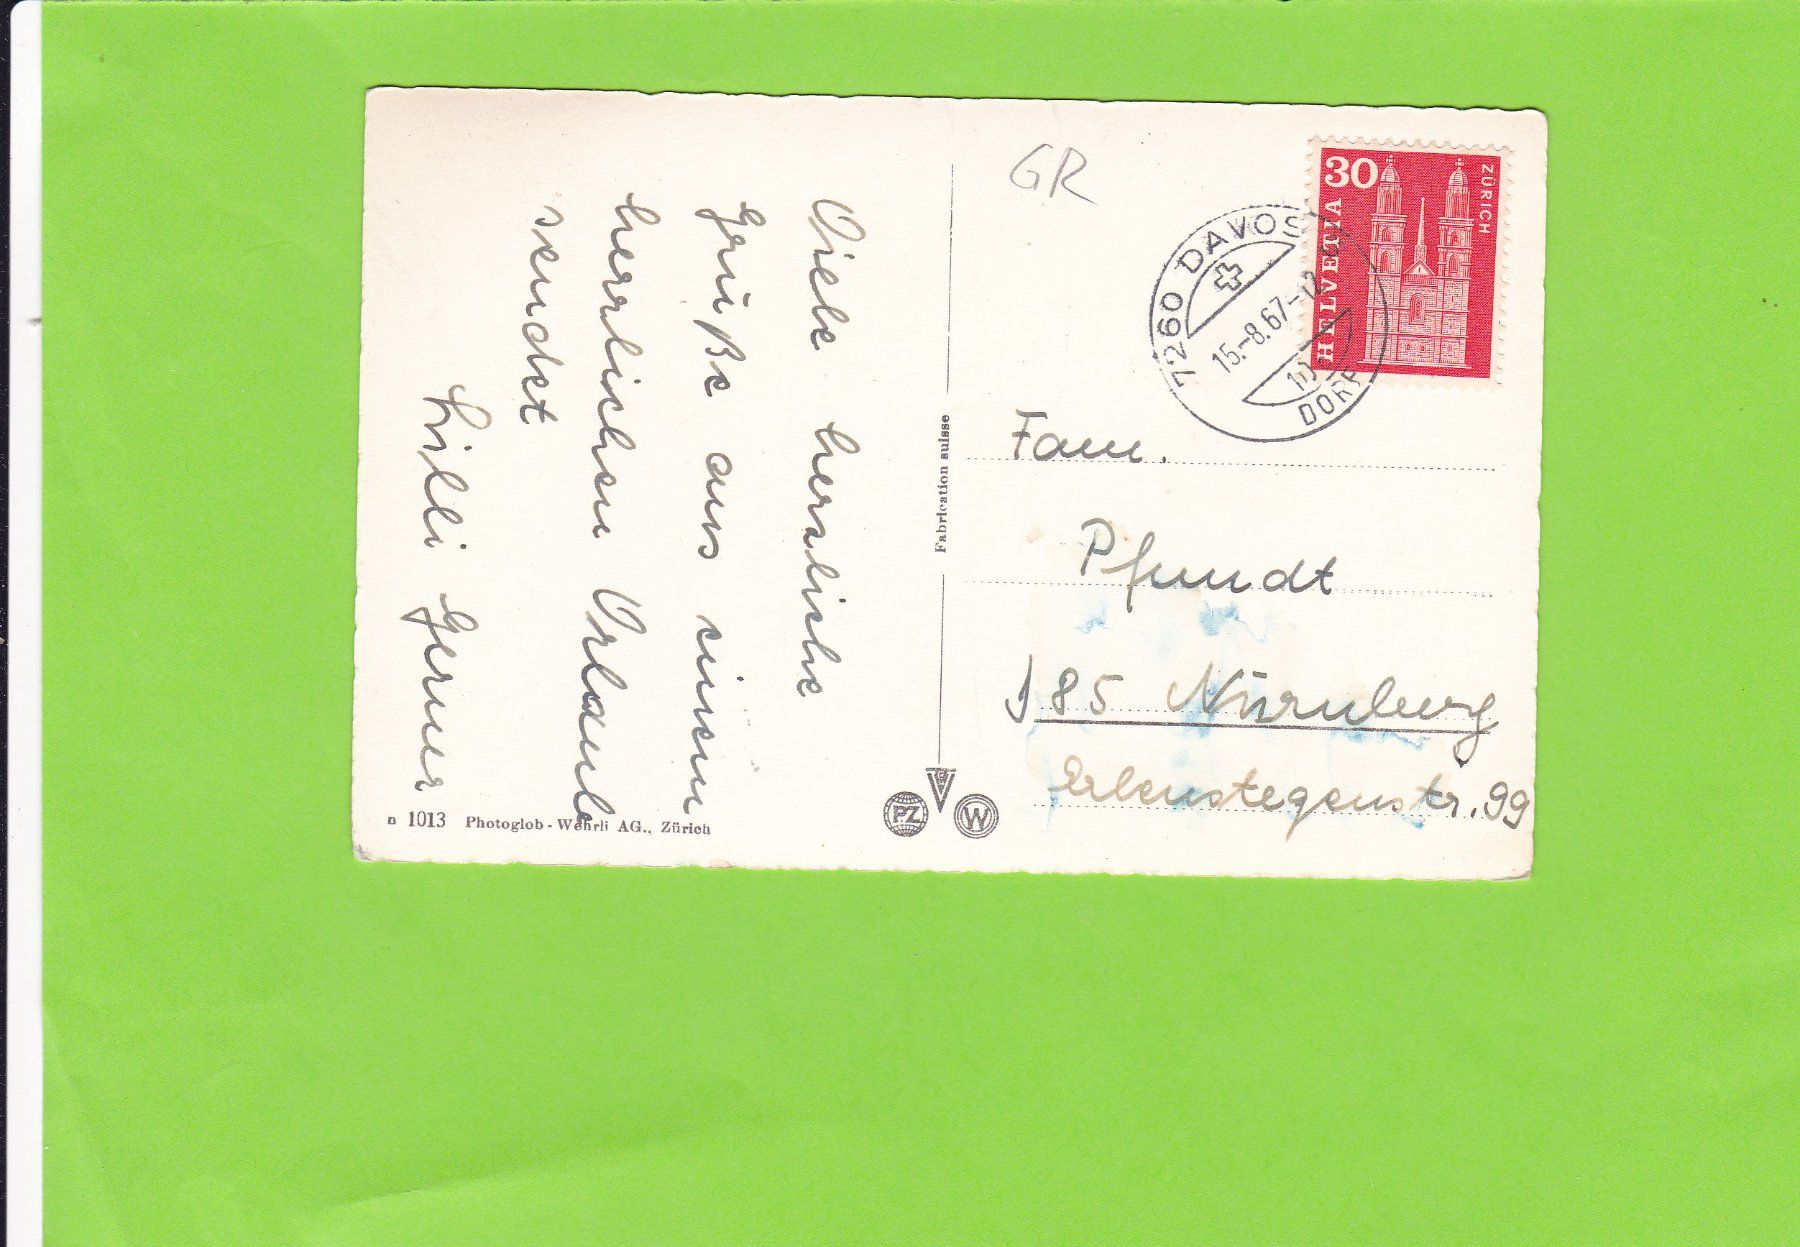 Viele herzliche
Grüße aus einem
herrlichen Urlaub
sendet
Lilli Gerner
n 1013 Photoglob - Wehrli AG., Zürich
Fabrication suisse
PZ
W
GR
30
HELVETIA
ZÜRICH
7260 DAVOS
15.-8.67-12
DORF
Fam.
Pfundt
D 85 Nürnberg
Erlenstegenstr. 99